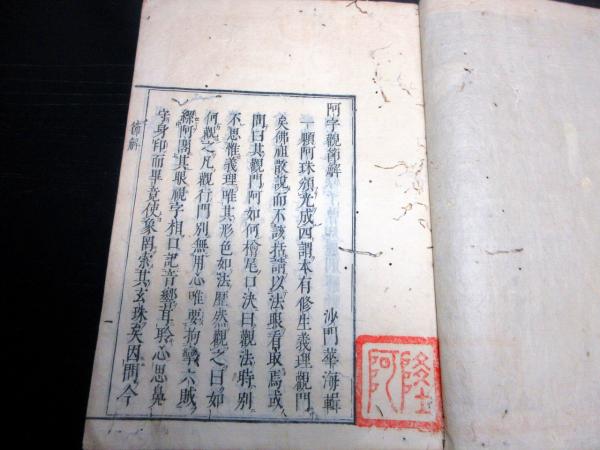 阿字觀節解
沙門華海輯
一顆阿珠頒光成四謂本有修生義理觀門
矣佛祖散說而不該括請以法眼看取焉或
問曰其觀門阿如何檜尾口決曰觀法時別
不思惟義理唯其形色如法歷然觀之曰如
何觀之凡觀行門別無用心唯要拘攣六賊
繆阿閣其眼視字相口記音響耳聆心思鼻
字身印而畢竟使象罔索其玄珠矣因問今
節解